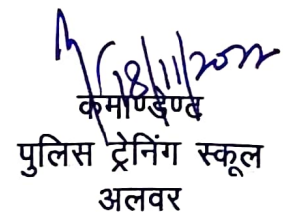 18/11/2022
कमाण्डेण्ट
पुलिस ट्रेनिंग स्कूल
अलवर